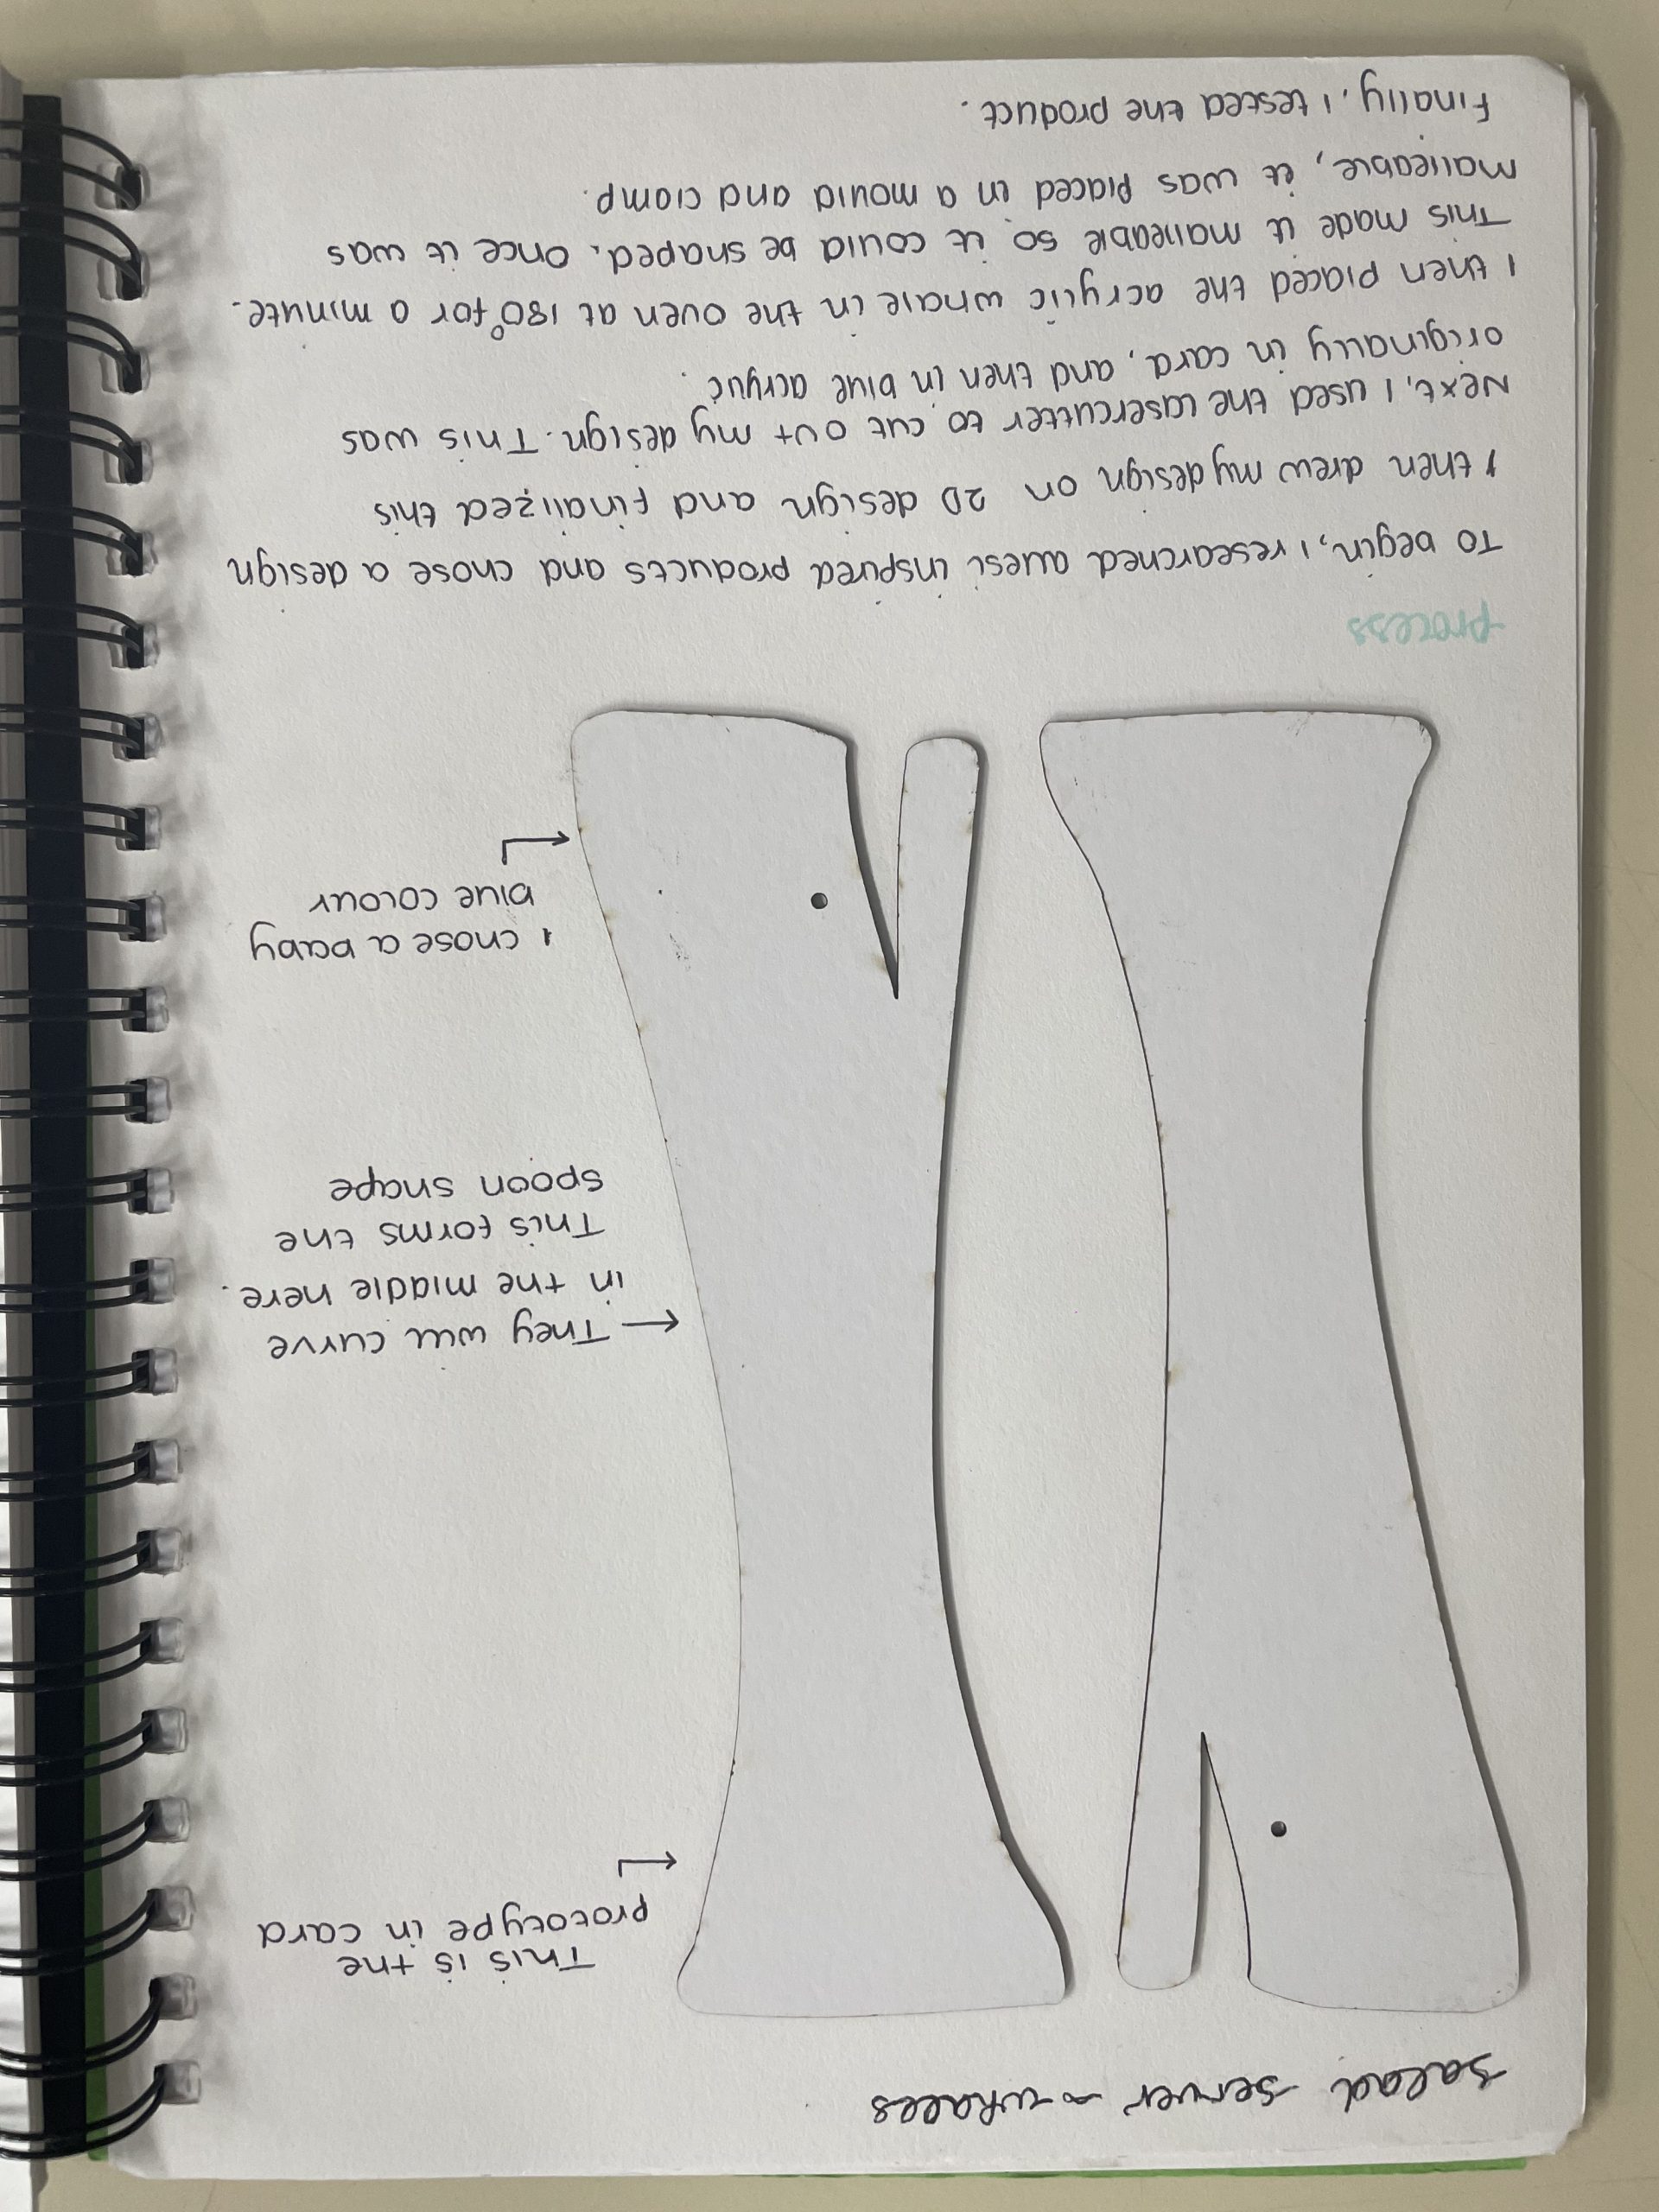 Salad server - whales
This is the
prototype in card
They will curve
in the middle here.
This forms the
spoon shape
I chose a baby
blue colour
process
To begin, I researched alessi inspired products and chose a design
I then drew my design on 2D design and finalized this
Next, I used the lasercutter to cut out my design. This was
originally in card, and then in blue acrylic.
I then placed the acrylic whale in the oven at 180° for a minute.
This made it malleable so it could be shaped. Once it was
malleable, it was placed in a mould and clamp.
Finally, I tested the product.